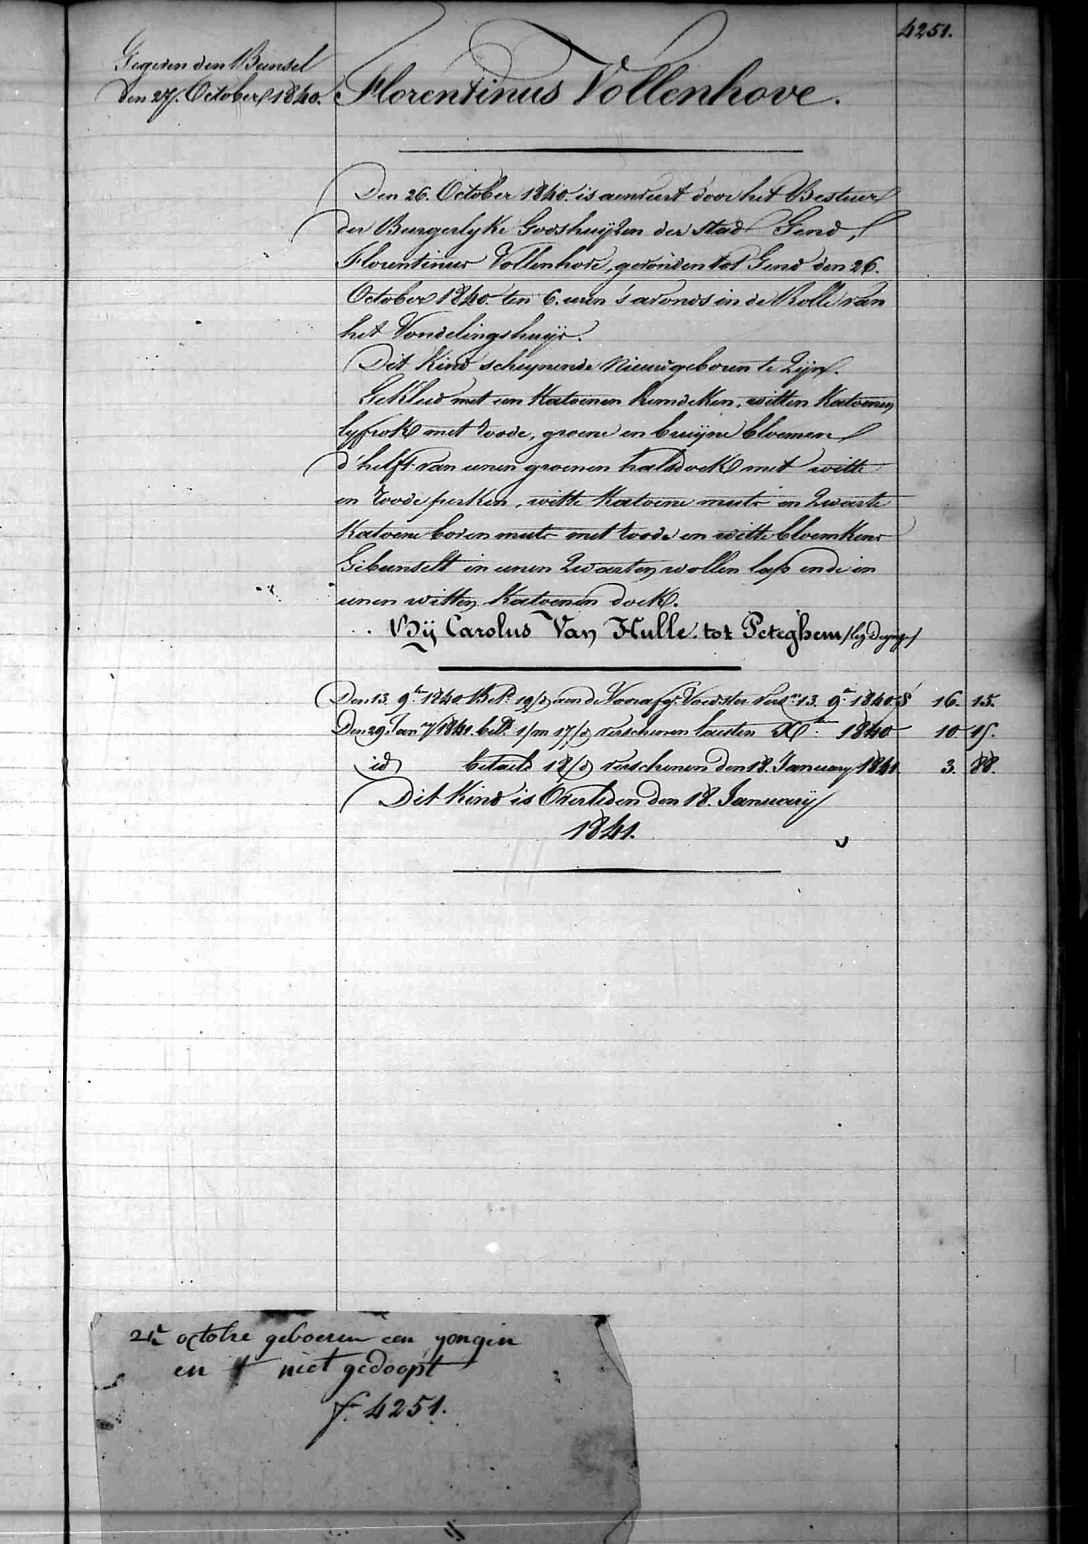 4251.
Gegeven den Bunsel
den 27. October 1840.
Florentinus Vollenhove.
Den 26. October 1840. is aenveert door het Bestuer
der Burgerlyke Godshuyzen der stad Gend,
Florentinus Vollenhove, gevonden tot Gend den 26.
October 1840. ten 6. uren 's avonds in de Rolle van
het Vondelingshuys.
Dit Kind scheynende nieuwgeboren te zyn.
Gekleed met een Katoenen hemdeken, witten Katoenen
lyfrok met roode, groene en bruyne bloemen
d'helft van eenen groenen halsdoek met witte
en roode perken, witte Katoene muts en zwarte
Katoene boven muts met roode en witte bloemkens
Gebunselt in eenen zwarten wollen lap ende in
eenen witten Katoenen doek.
Bÿ Carolus Van Hulle. tot Peteghem
Den 13. 9.r 1840. Bet. 19/d aen de Voorafg. Voedster vers.n 13. 9.r 1840. 16. 15.
Den 29 Jan.y 1841. bet. 1/m 17/d verschenen lausten X.r 1840 10 15.
id betaelt 18/d verschenen den 18. January 1841 3. 88.
Dit Kind is Overleden den 18. Januarÿ
1841.
25 octobre geboeren een yongin
en niet gedoopt
f. 4251.